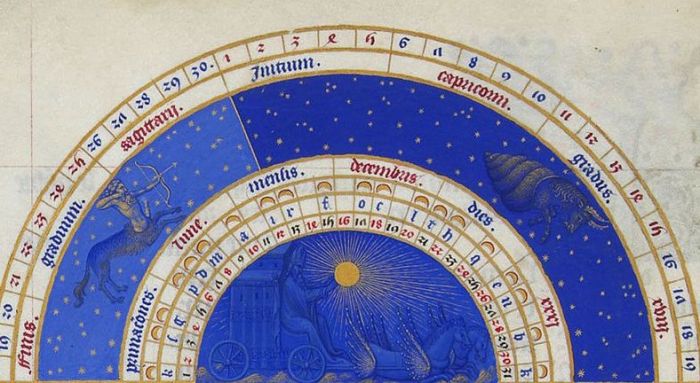 19 20 21 22 23 24 25 26 27 28 29 30. 1 2 3 4 5 6 7 8 9 10 11 12 13 14 15 16 17 18 19
finis graduum sagittarij. Initium capricorni gradus xviij
primaciones lune. mensis decembris. dies xxxi
k s g p d m a i r f o c l t h q e n b k
1 2 3 4 5 6 7 8 9 10 11 12 13 14 15 16 17 18 19 20 21 22 23 24 25 26 27 28 29 30 31